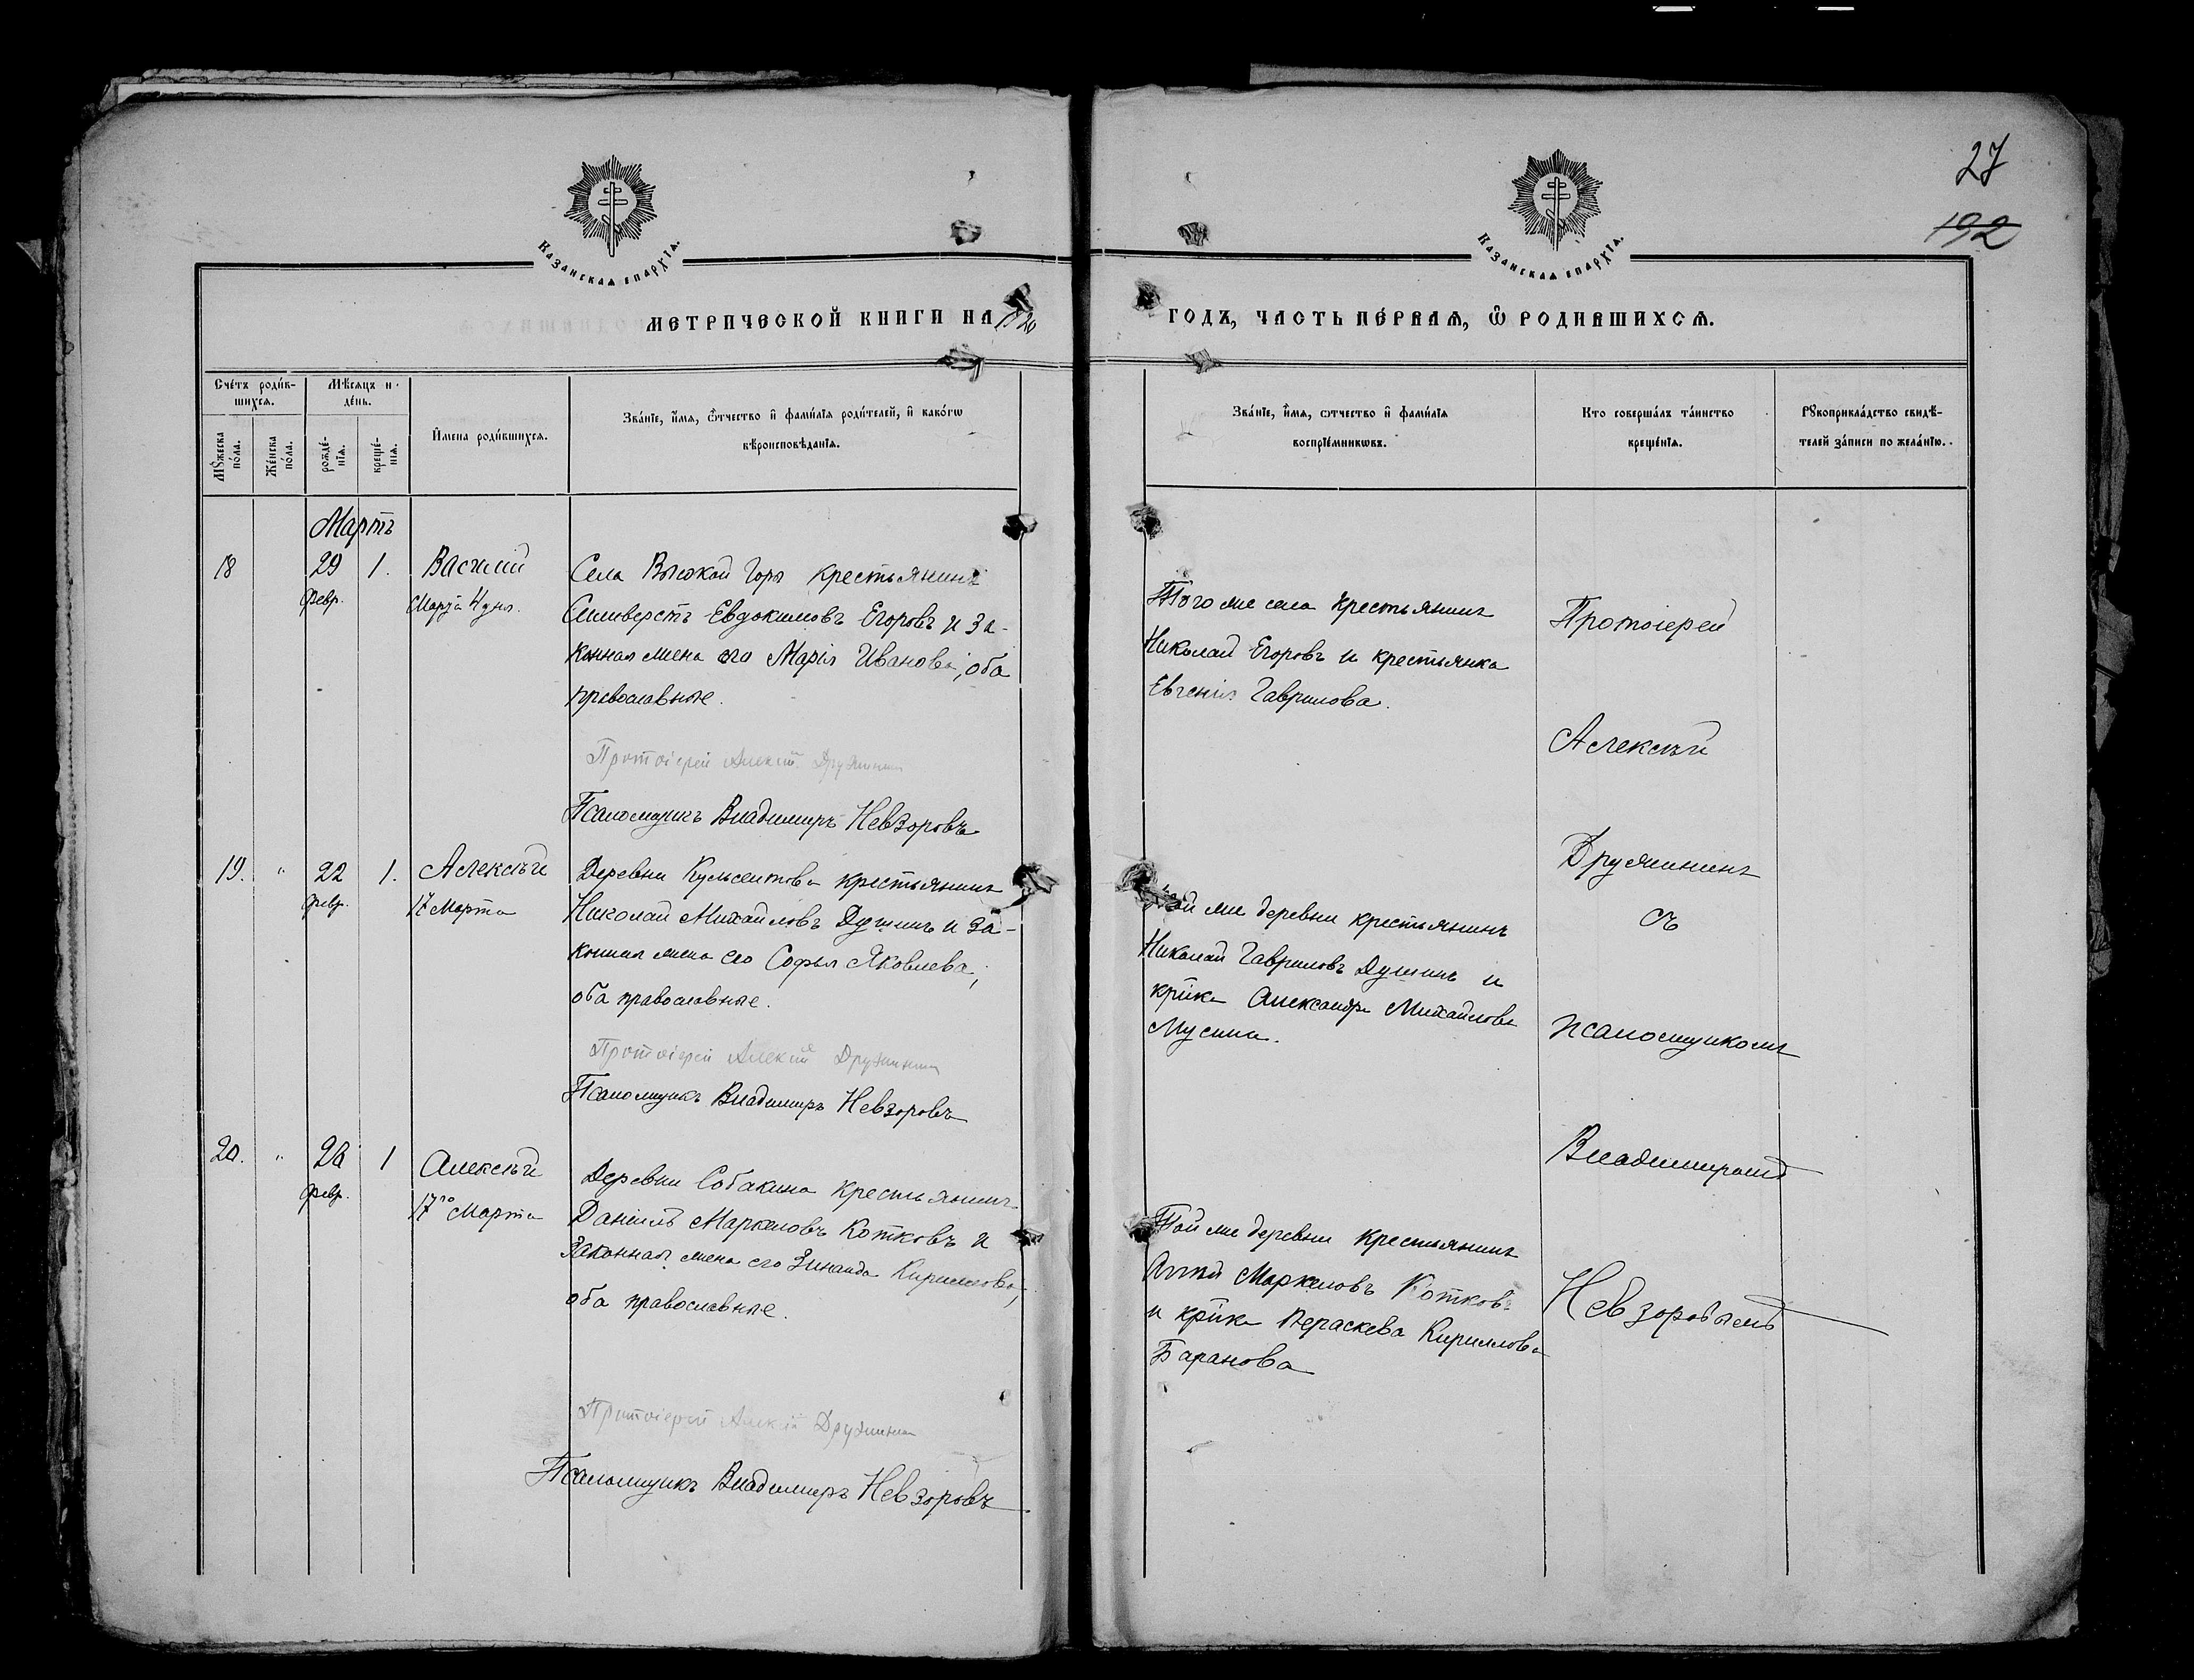 27
192
Казанская епархїа.
Казанская епархїа.
МЕТРИЧЕСКОЙ КНИГИ НА 1920
ГОДЪ, ЧАСТЬ ПЕ́РВАЯ, Ѿ РОДИВШИХСЯ.
Сче́тъ роди́вшихся.
Му́жеска по́ла.
Же́нска по́ла.
Мѣ́сяцъ и де́нь.
рожде́нїя.
креще́нїя.
И́мена роди́вшихся.
Зва́нїе, и́мя, ѻ҆́тчество и҆ фами́лїя роди́телей, и҆ како́гѡ вѣроисповѣ́данїя.
Зва́нїе, и҆́мя, ѻтчество и҆ фами́лїя воспрїе́мникѡвъ.
Кто соверша́лъ та́инство креще́нїя.
Рꙋкоприкла́дство свидѣ́телей за́писи по жела́нїю.
Мартъ
18
29
Февр.
1.
Василій
Марта 4 дня.
Села Высокой Горы крестьянинъ
Силиверстъ Евдокимовъ Егоровъ и за-
конная жена его Марія Иванова, оба
православные.
Протоіерей Алексій Дружинин
Псаломщикъ Владимиръ Невзоровъ
Того же села крестьянинъ
Николай Егоровъ и крестьянка
Евгенія Гаврилова.
19.
"
22
февр.
1.
Алексѣй
17 Марта
Деревни Кульсеитова крестьянинъ
Николай Михайловъ Душинъ и за-
конная жена его Софья Яковлева,
оба православные.
Протоіерей Алексій Дружинин
Псаломщикъ Владимиръ Невзоровъ
Той же деревни крестьянинъ
Николай Гавриловъ Душинъ и
кр-нка Александра Михайлова
Мусина.
20.
"
26
февр.
1
Алексѣй
17го Марта
Деревни Собакина крестьянинъ
Даніилъ Маркеловъ Котковъ и
законная жена его Зинаида Кириллова,
оба православные.
Протоіерей Алексій Дружинин
Псаломщикъ Владимиръ Невзоровъ
Той же деревни крестьянинъ
Маркеловъ Котковъ
и кр-нка Пераскева Кириллова
Баранова
Протоіерей
Алексѣй
Дружининъ
съ
псаломщикомъ
Владимиромъ
Невзоровымъ